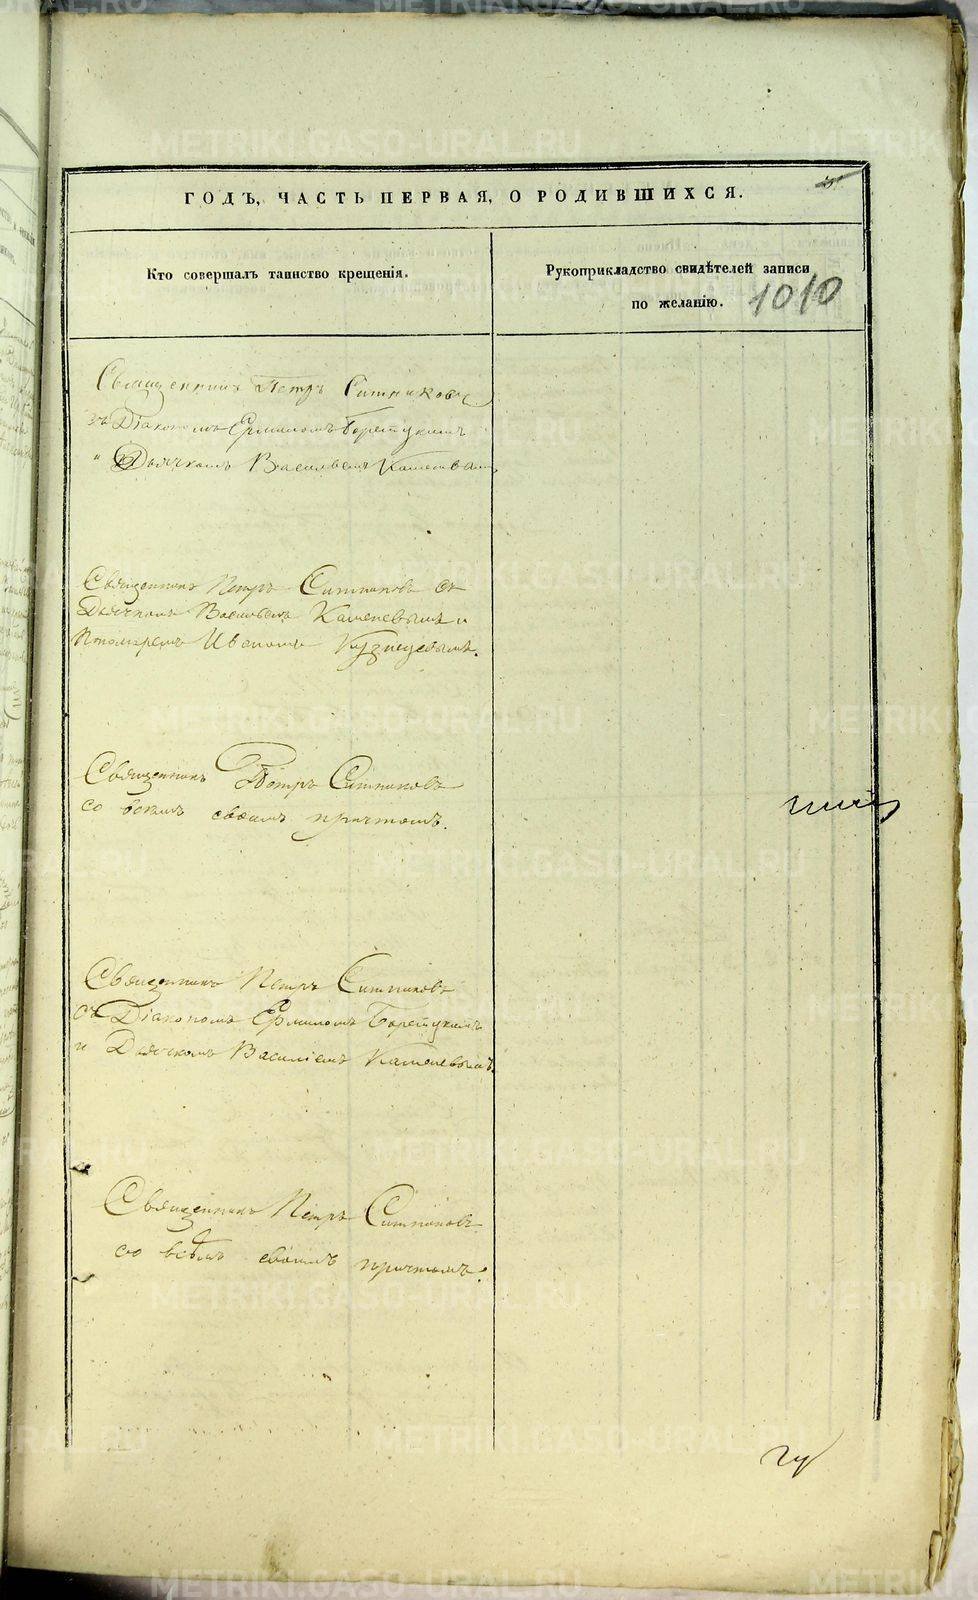 ГОДЪ, ЧАСТЬ ПЕРВАЯ, О РОДИВШИХСЯ.
Кто совершалъ таинство крещенія.
Рукоприкладство свидѣтелей записи
по желанію.
1010
Священникъ Петръ Ситниковъ
съ Діакономъ Ермиломъ Борецкимъ
и Дьячкомъ Васильемъ Каменевымъ
Священникъ Петръ Ситниковъ съ
Дьячкомъ Васильемъ Каменевымъ и
Пономаремъ Иваномъ Кузнецовымъ.
Священникъ Петръ Ситниковъ
со всемъ своимъ причтомъ.
Священникъ Петръ Ситниковъ
съ Діакономъ Ермиломъ Борецкимъ
и Дьячкомъ Василіемъ Каменевымъ.
Священникъ Петръ Ситниковъ
со всѣмъ своимъ причтомъ.
METRIKI.GASO-URAL.RU